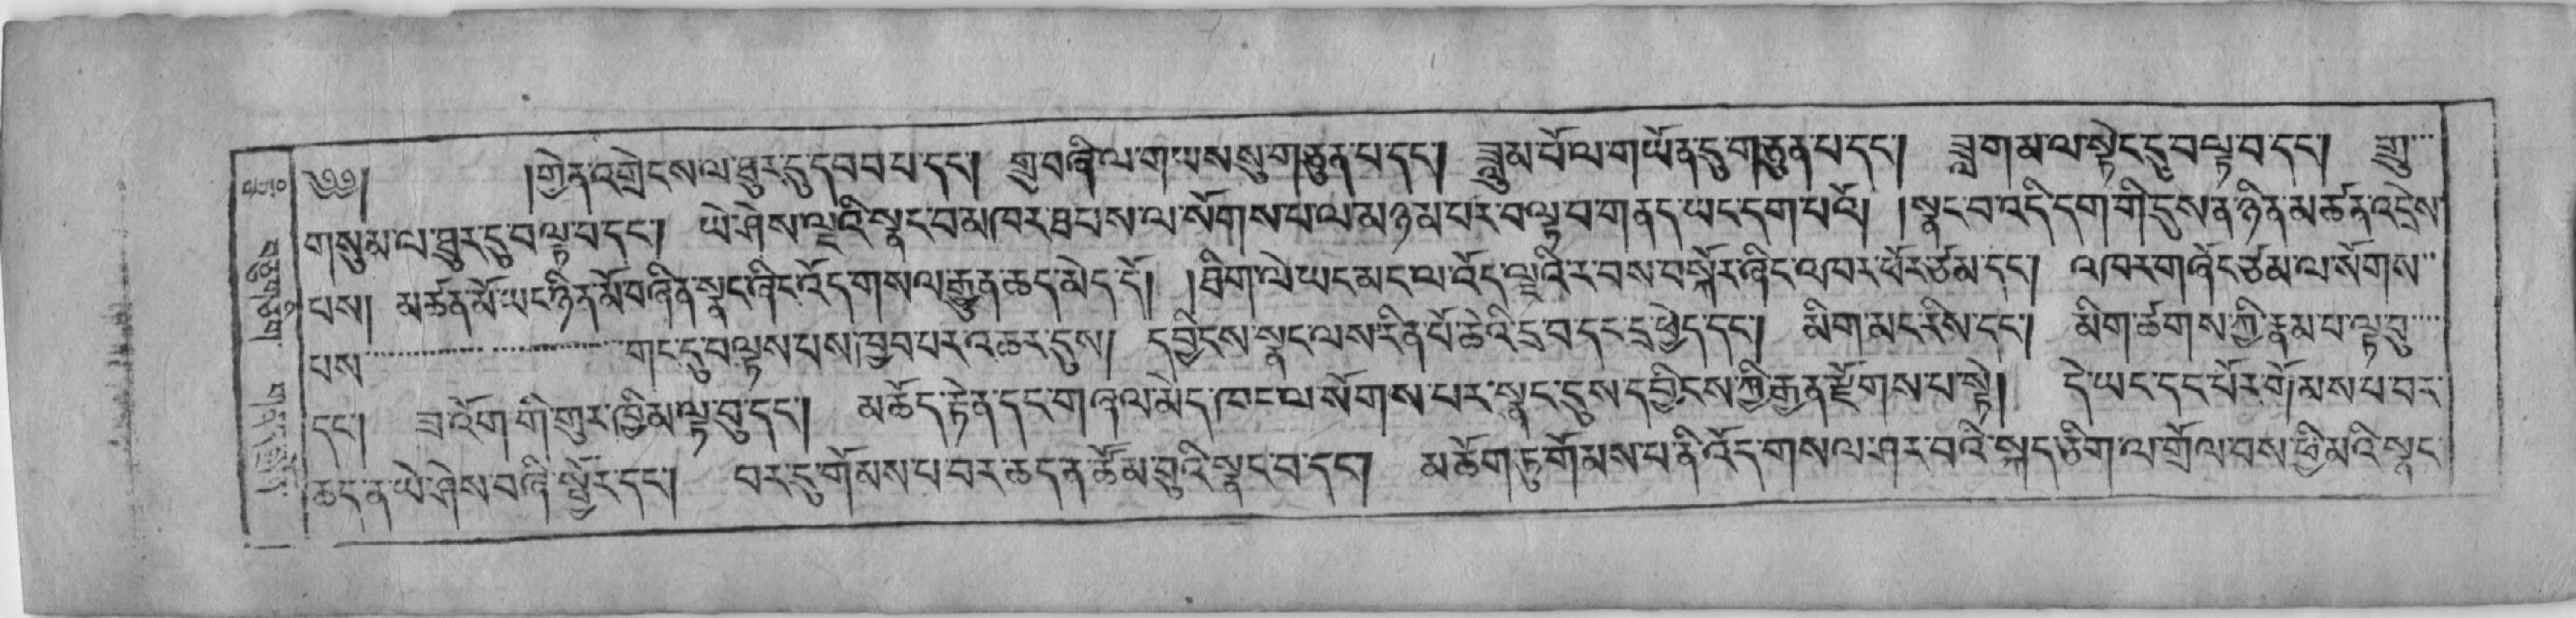 ༄༅། །གྱེན་འགྲེངས་ལ་ཐུར་དུ་དབབ་པ་དང༌། གྲུ་བཞི་ལ་གཡས་སུ་གཅུན་པ་དང༌། ཟླུམ་པོ་ལ་གཡོན་དུ་གཅུན་པ་དང༌། ཟླ་གམ་ལ་སྟེང་དུ་བལྟ་བ་དང༌། གྲུ་
གསུམ་ལ་ཐུར་དུ་བལྟ་བ་དང༌། ཡེ་ཤེས་ལྔའི་སྣང་བ་མཁར་ཐབས་ལ་སོགས་པ་ལ་མཉམ་པར་བལྟ་བ་གནད་ཡང་དག་པའོ། །སྣང་བ་འདི་དག་གི་དུས་ན་ཉིན་མཚན་འདྲེས་
པས། མཚན་མོ་ཡང་ཉིན་མོ་བཞིན་སྣང་ཞིང་འོད་གསལ་རྒྱུན་ཆད་མེད་དོ། །ཐིག་ལེ་ཡང་མང་ལ་འོད་ལྔའི་ར་བས་བསྐོར་ཞིང་འཁར་ཕོར་ཙམ་དང༌། འཁར་གཞོང་ཙམ་ལ་སོགས་
པས་ གང་དུ་བལྟས་པས་ཁྱབ་པར་འཆར་དུས། དབྱིངས་སྣང་ལས་རིན་པོ་ཆེའི་དྲ་བ་དང་དྲ་ཕྱེད་དང༌། མིག་མངས་རིས་དང༌། མིག་ཚགས་ཀྱི་རྣམ་པ་ལྟ་བུ་
དང༌། ཟྭ་འོག་གི་གུར་ཁྱིམ་ལྟ་བུ་དང༌། མཆོད་རྟེན་དང་གཞལ་མེད་ཁང་ལ་སོགས་པར་སྣང་དུས་དབྱིངས་ཀྱི་རྒྱན་རྫོགས་པ་སྟེ། དེ་ཡང་དང་པོར་གོམས་པ་བར་
ཆད་ན་ཡེ་ཤེས་བཞི་སྦྱོར་དང༌། བར་དུ་གོམས་པ་བར་ཆད་ན་ཚོམ་བུའི་སྣང་བ་དང༌། མཆོག་ཏུ་གོམས་པ་ནི་འོད་གསལ་ཤར་བའི་སྐད་ཅིག་ལ་གྲོལ་བས་ཕྱི་མའི་སྣང་